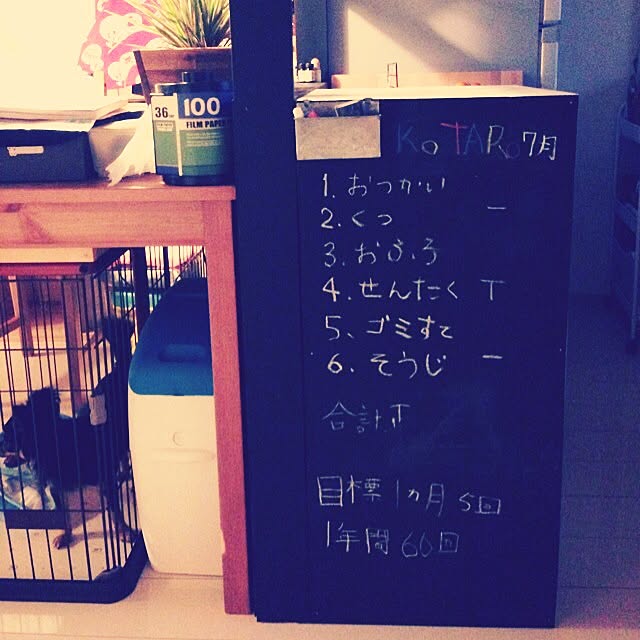 36
100
FILM PAPER
KOTARO 7月
1. おつかい
2. くつ 一
3. おふろ
4. せんたく T
5. ゴミすて
6. そうじ 一
合計 下
目標 1ヵ月 5回
1年間 60回